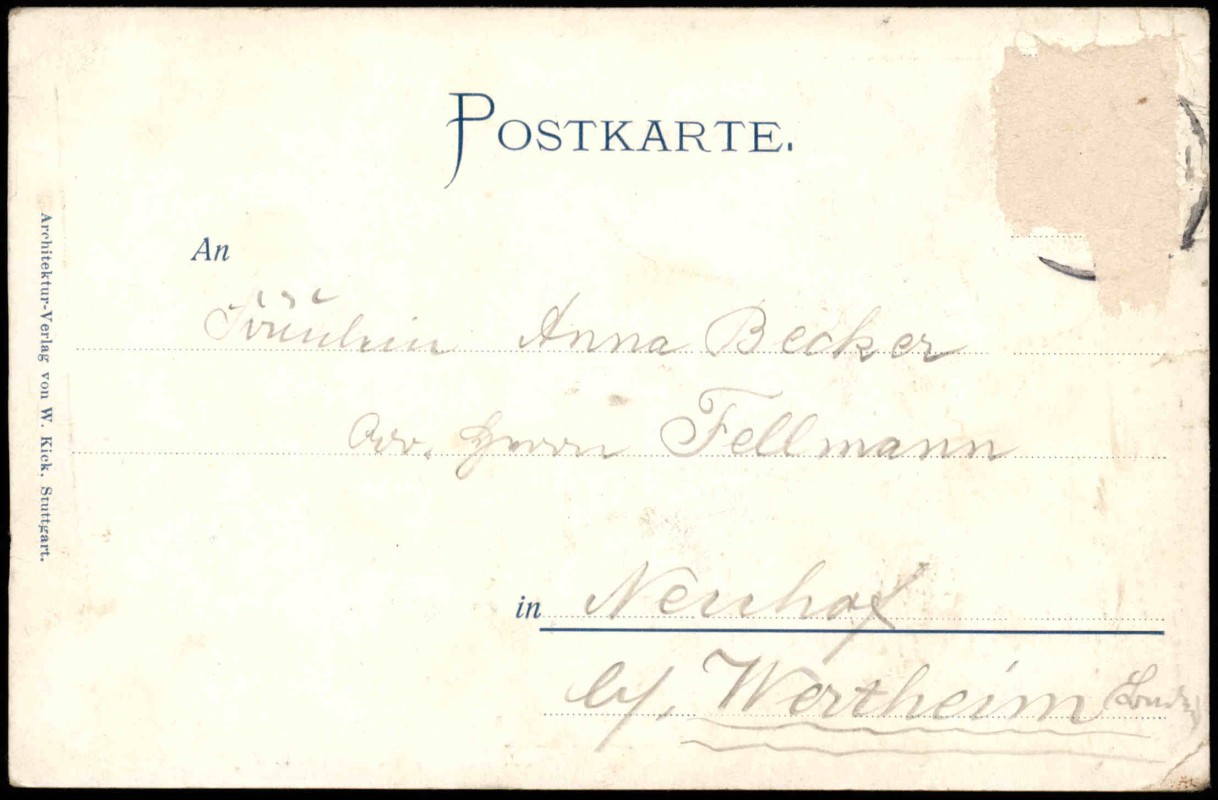 POSTKARTE.
An
Fräulein Anna Becker
Adr. Herrn Fellmann
in Neuhof
b/. Wertheim
Architektur-Verlag von W. Kick, Stuttgart.